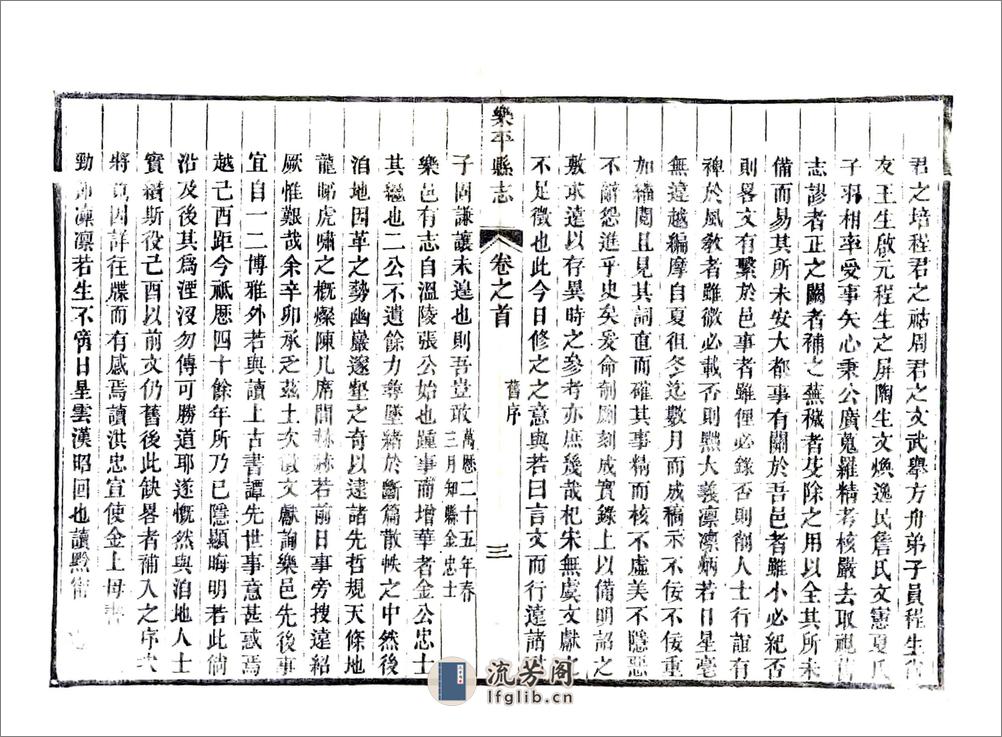 君之培程君之祜周君之文武舉方舟弟子員程生
友王生啟元程生之屏陶生文煥逸民詹氏文憲夏氏
子羽相率受事矢心秉公廣蒐羅精考核嚴去取視舊
志謬者正之闕者補之蕪穢者芟除之用以全其所未
備而易其所未安大都事有關於吾邑者雖小必紀否
則畧文有繫於邑事者雖俚必錄否則削人士行誼有
裨於風教者雖微必載否則黙大義凛凛炳若日星毫
無遺越編摩自夏徂冬迄數月而成稿示不佞不佞重
加繙閱且見其詞直而確其事精而核不虛美不隱惡
不辭怨進乎史矣爰命剞劂刻成實錄上以備明詔之
敷求遠以存異時之參考亦庶幾哉杞宋無虞文獻之
不足徵也此今日修之之意與若曰言文而行遠諸
舊序
樂平縣志
卷之首
三
子固謙讓未遑也則吾豈敢
萬厯二十五年春
三月知縣金忠士
樂邑有志自溫陵張公始也踵事而增華者金公忠士
其繼也二公不遺餘力尋墜緒於斷篇散帙之中然後
洎地因革之勢幽巖邃壑之奇以逮諸先哲規天條地
龍睇虎嘯之概燦陳几席間赫赫若前日事旁搜遠紹
厥惟艱哉余辛卯承乏茲土次徵文獻詢樂邑先後事
宜自一二博雅外若與讀上古書譚先世事意甚惑焉
越己酉距今祇厯四十餘年所乃已隱顯晦明若此倘
沿及後其爲湮沒勿傳可勝道耶遂慨然與洎地人士
實纘斯役己酉以前文仍舊後此缺畧者補入之序次
將竟因詳往牒而有感焉讀洪忠宣使金上母書
勁凛凛若生不啻日星雲漢昭回也讀黙
流芳阁
lfglib.cn